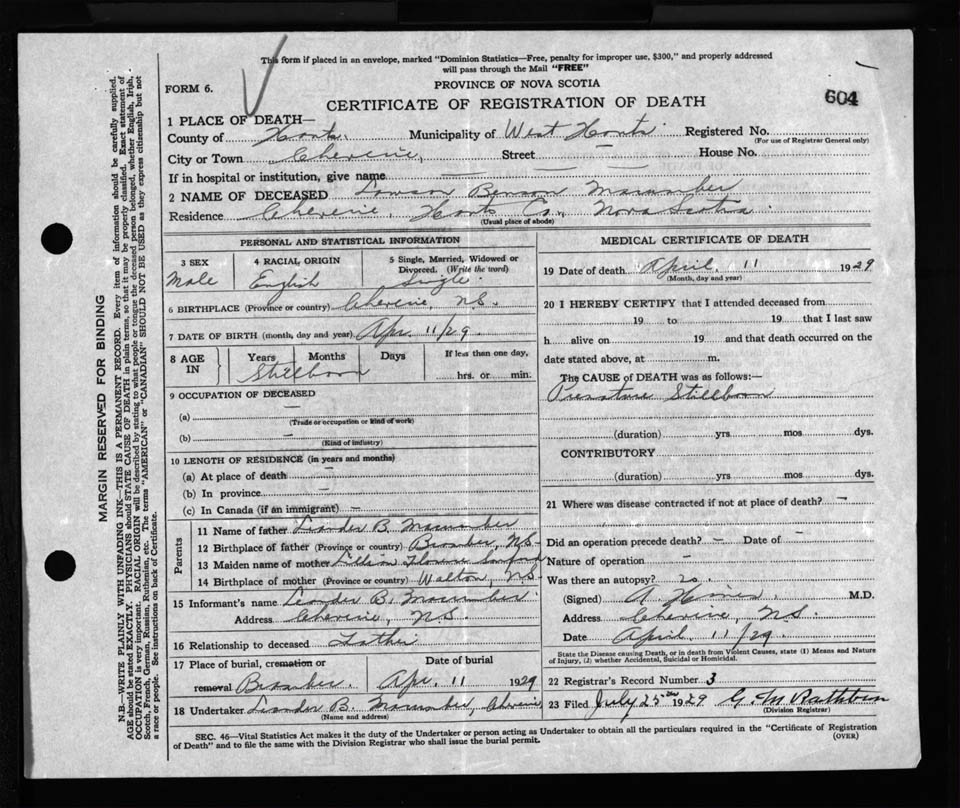 This form if placed in an envelope, marked "Dominion Statistics—Free, penalty for improper use, $300," and properly addressed
will pass through the Mail "FREE"
FORM 6.
PROVINCE OF NOVA SCOTIA
CERTIFICATE OF REGISTRATION OF DEATH
604
1 PLACE OF DEATH—
County of Hants. Municipality of West Hants Registered No.
(For use of Registrar General only)
City or Town Cheverie, Street — House No.
If in hospital or institution, give name — — —
2 NAME OF DECEASED Lawson Benson Macumber
Residence Cheverie, Hants Co., Nova Scotia.
(Usual place of abode)
PERSONAL AND STATISTICAL INFORMATION
3 SEX 4 RACIAL ORIGIN 5 Single, Married, Widowed or
Divorced. (Write the word)
Male English Single
6 BIRTHPLACE (Province or country) Cheverie, N.S.
7 DATE OF BIRTH (month, day and year) Apr. 11/29.
8 AGE IN Years Months Days If less than one day,
Stillborn hrs. or min.
9 OCCUPATION OF DECEASED
(a) —
(Trade or occupation or kind of work)
(b) —
(Kind of industry)
10 LENGTH OF RESIDENCE (in years and months)
(a) At place of death —
(b) In province —
(c) In Canada (if an immigrant) —
Parents
11 Name of father Leander B. Macumber
12 Birthplace of father (Province or country) N.S.
13 Maiden name of mother Lillian Florence Sanford
14 Birthplace of mother (Province or country) Walton, N.S.
15 Informant's name Leander B. Macumber.
Address Cheverie, N.S.
16 Relationship to deceased Father
17 Place of burial, cremation or Date of burial
removal Apr. 11 1929
18 Undertaker Leander B. Macumber, Cheverie
(Name and address)
MEDICAL CERTIFICATE OF DEATH
19 Date of death April 11 1929
(Month, day and year)
20 I HEREBY CERTIFY that I attended deceased from
19 to 19 that I last saw
h alive on 19 and that death occurred on the
date stated above, at m.
The CAUSE of DEATH was as follows:—
Premature Stillborn
(duration) yrs mos dys.
CONTRIBUTORY
(duration) yrs mos dys.
21 Where was disease contracted if not at place of death? —
Did an operation precede death? — Date of —
Nature of operation —
Was there an autopsy? no.
(Signed) M.D.
Address Cheverie, N.S.
Date April 11/29.
State the Disease causing Death, or in death from Violent Causes, state (1) Means and Nature
of Injury, (2) whether Accidental, Suicidal or Homicidal.
22 Registrar's Record Number 3
23 Filed July 25th 1929 G. M. Rathbun
(Division Registrar)
SEC. 46—Vital Statistics Act makes it the duty of the Undertaker or person acting as Undertaker to obtain all the particulars required in the "Certificate of Registration
of Death" and to file the same with the Division Registrar who shall issue the burial permit.
(OVER)
MARGIN RESERVED FOR BINDING
N.B.—WRITE PLAINLY WITH UNFADING INK—THIS IS A PERMANENT RECORD. Every item of information should be carefully supplied.
AGE should be stated EXACTLY. PHYSICIANS should STATE CAUSE OF DEATH in plain terms, so that it may be properly classified. Exact statement of
OCCUPATION is very important. RACIAL ORIGIN will be described by stating to what people or tongue the deceased person belonged, whether English, Irish,
Scotch, French, German, Russian, Ruthenian, etc. The terms "AMERICAN" or "CANADIAN" SHOULD NOT BE USED as they express citizenship but not
a race or people. See instructions on back of Certificate.